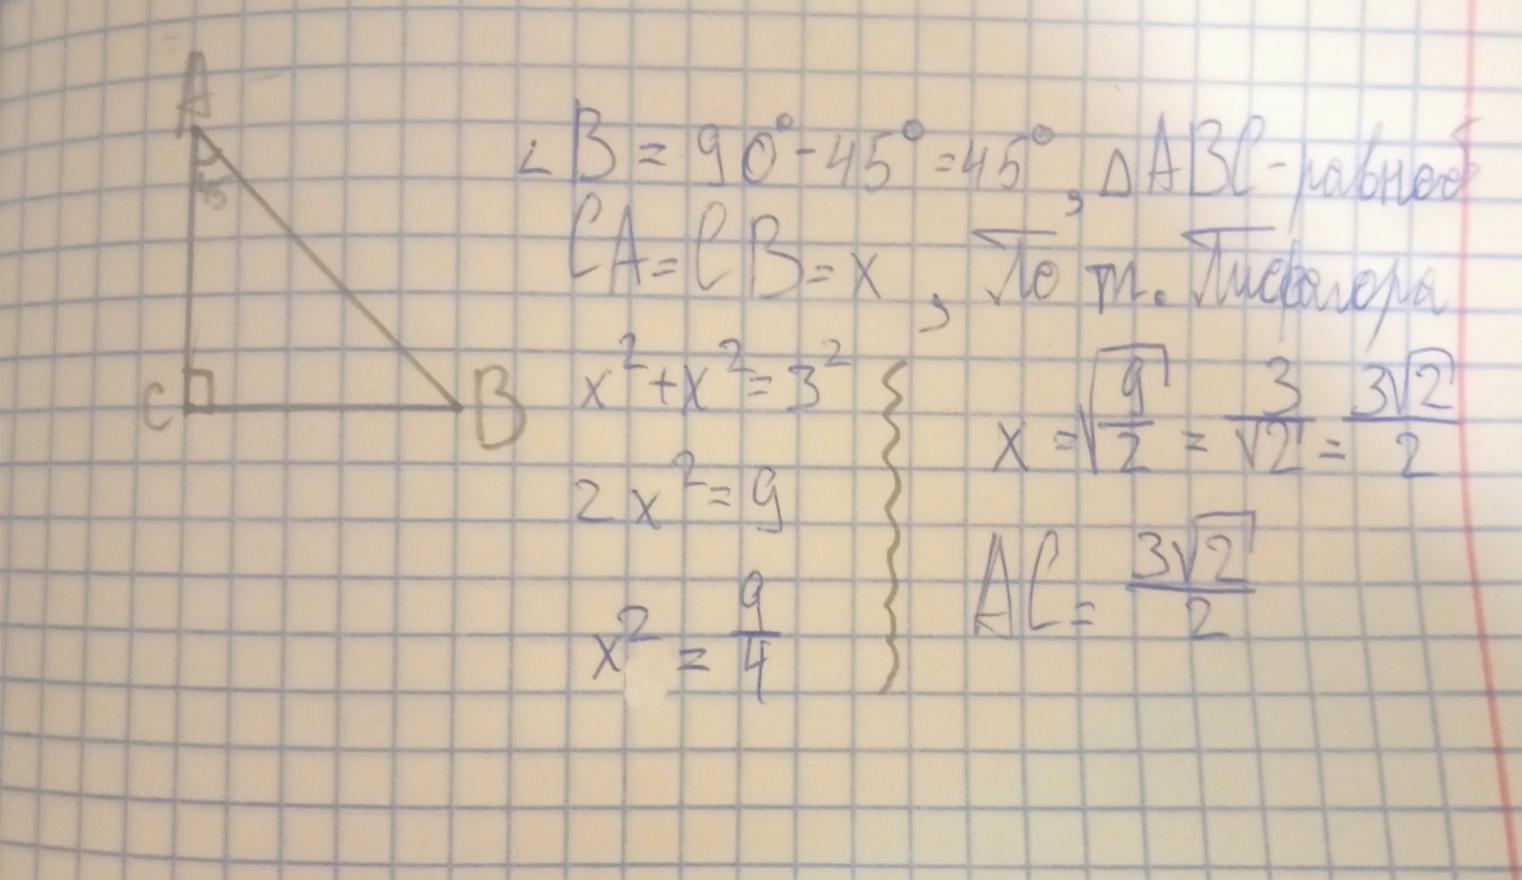 A
45
C
B
∠B = 90° - 45° = 45°, △ABC - равноб
CA = CB = x, По т. Пифагора
x² + x² = 3²
2x² = 9
x² = 9/4
x = √(9/2) = 3/√2 = 3√2/2
AC = 3√2/2